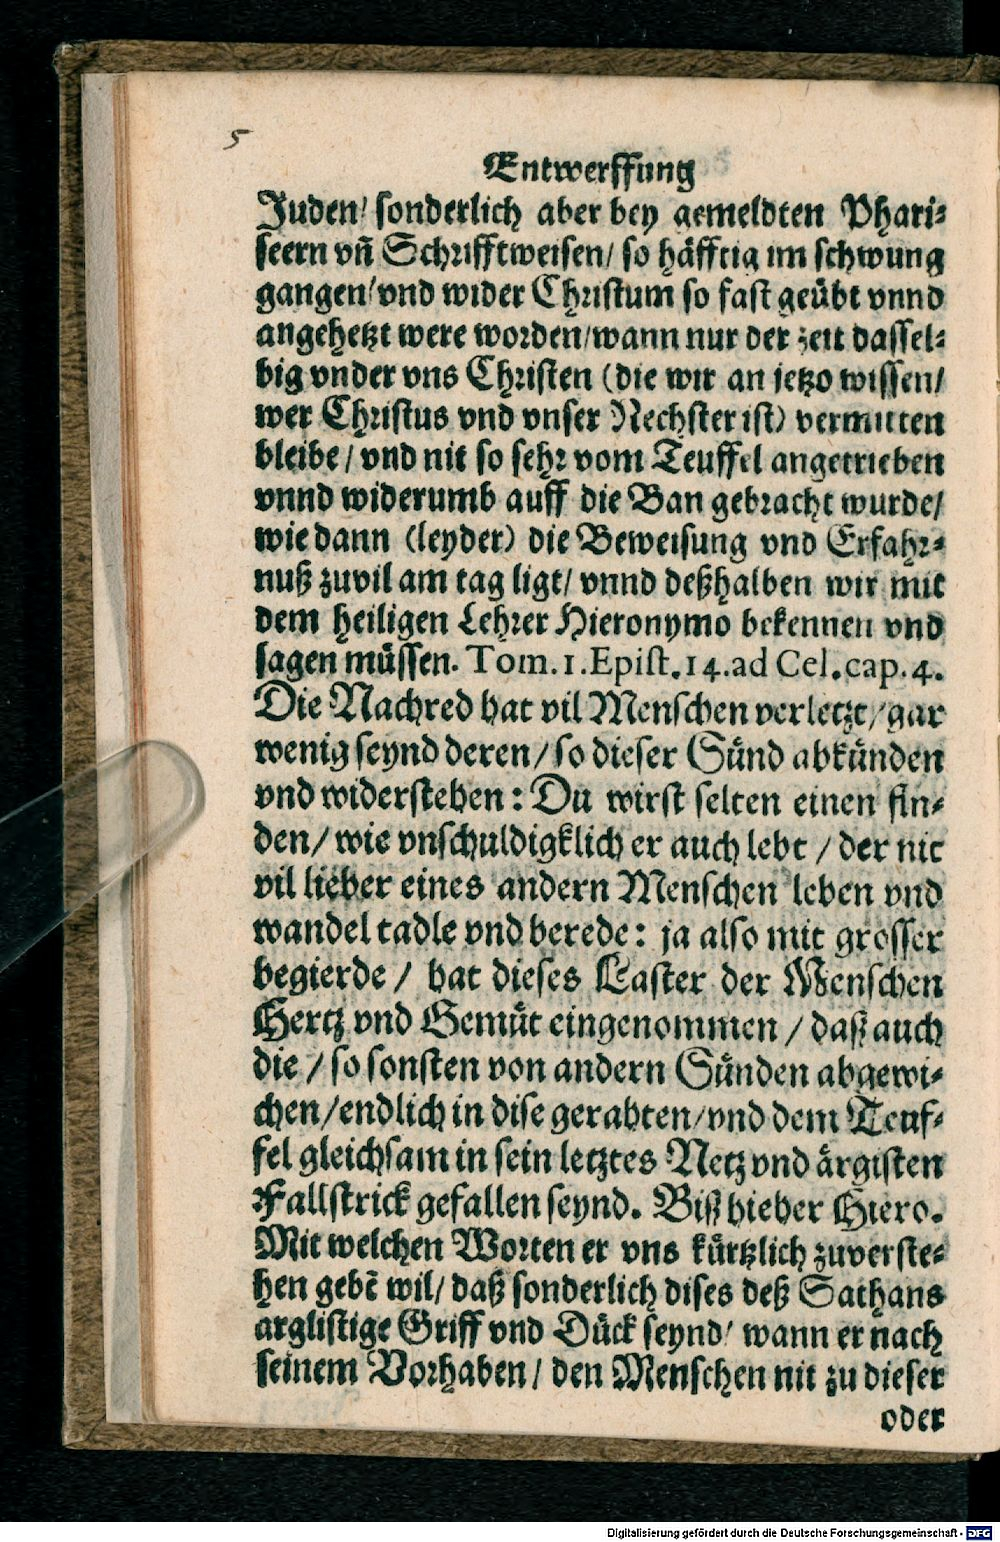 5
Entwerffung
Juden/ sonderlich aber bey gemeldten Phari⸗
seern vñ Schrifftweisen/ so häfftig im schwung
gangen/ vnd wider Christum so fast geübt vnnd
angehetzt were worden/ wann nur der zeit dassel⸗
big vnder vns Christen (die wir an jetzo wissen/
wer Christus vnd vnser Nechster ist) vermitten
bleibe/ vnd nit so sehr vom Teuffel angetrieben
vnnd widerumb auff die Ban gebracht wurde/
wie dann (leyder) die Beweisung vnd Erfahr⸗
nuß zuvil am tag ligt/ vnnd deßhalben wir mit
dem heiligen Lehrer Hieronymo bekennen vnd
sagen müssen. Tom. 1. Epist. 14. ad Cel. cap. 4.
Die Nachred hat vil Menschen verletzt/ gar
wenig seynd deren/ so dieser Sünd abkünden
vnd widerstehen: Du wirst selten einen fin⸗
den/ wie vnschuldigklich er auch lebt/ der nit
vil lieber eines andern Menschen leben vnd
wandel tadle vnd berede: ja also mit grosser
begierde/ hat dieses Laster der Menschen
Hertz vnd Gemüt eingenommen/ daß auch
die/ so sonsten von andern Sünden abgewi⸗
chen/ endlich in dise gerahten/ vnd dem Teuf⸗
fel gleichsam in sein letztes Netz vnd ärgisten
Fallstrick gefallen seynd. Biß hieher Hiero.
Mit welchen Worten er vns kürtzlich zuverste⸗
hen gebē wil/ daß sonderlich dises deß Sathans
arglistige Griff vnd Dück seynd/ wann er nach
seinem Vorhaben/ den Menschen nit zu dieser
oder
Digitalisierung gefördert durch die Deutsche Forschungsgemeinschaft - DFG